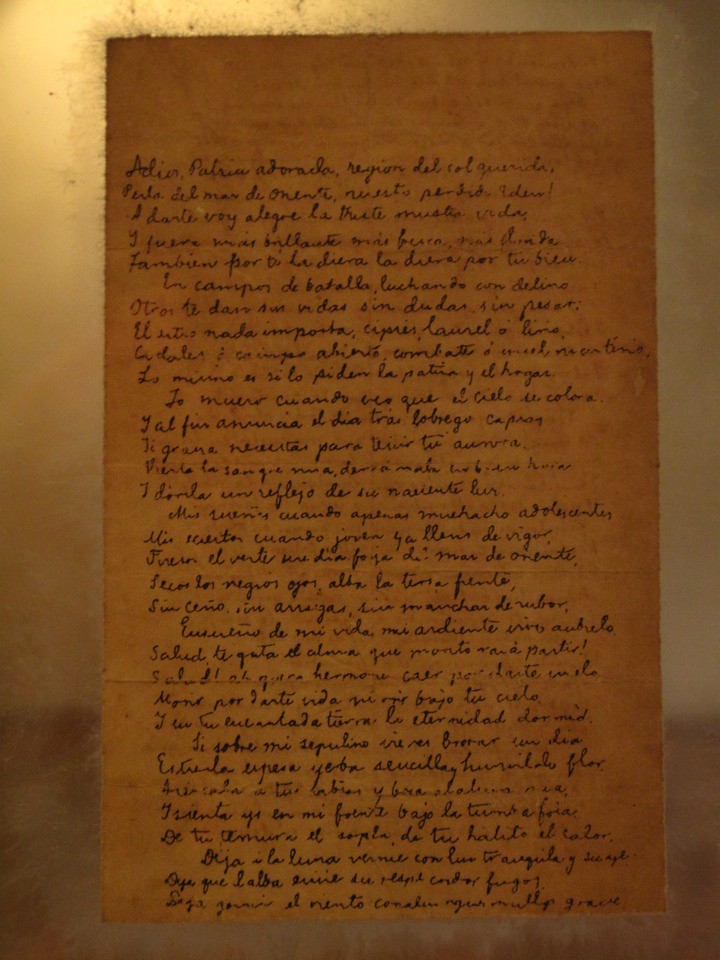 Adios, Patria adorada, region del sol querida,
Perla del mar de oriente, nuestro perdido Eden!
A darte voy alegre la triste mustia vida,
Y fuera más brillante más fresca, más florida
Tambien por tí la diera la diera por tu bien.
En campos de batalla, luchando con delirio
Otros te dan sus vidas sin dudas, sin pesar;
El sitio nada importa, ciprés, laurel ó lirio,
Cadalso ó campo abierto, combate ó cruel martirio,
Lo mismo es si lo piden la patria y el hogar.
Yo muero cuando veo que el cielo se colora
Y al fin anuncia el día tras lobrego capuz
Si grana necesitas para teñir tu aurora
Vierte la sangre mia, derramala en buen hora
Y dórela un reflejo de su naciente luz.
Mis sueños cuando apenas muchacho adolescente,
Mis sueños cuando joven ya lleno de vigor,
Fueron el verte un día joya del mar de oriente,
Secos los negros ojos, alta la tersa frente,
Sin ceño, sin arrugas, sin manchas de rubor.
Ensueño de mi vida, mi ardiente vivo anhelo
Salud, te grita el alma que pronto va á partir!
Salud! ah que es hermoso caer por darte vuelo
Morir por darte vida morir bajo tu cielo
Y en tu encantada tierra la eternidad dormir.
Si sobre mi sepulcro vieres brotar un dia
Entre la espesa yerba sencilla, humilde flor
Acercala a tus labios y besa al alma mia,
Y sienta yo en mi frente bajo la tumba fria
De tu ternura el soplo, de tu halito el calor.
Deja á la luna verme con luz tranquila y suave
Deja que el alba envie su resplandor fugaz,
Deja gemir el viento con su murmullo grave